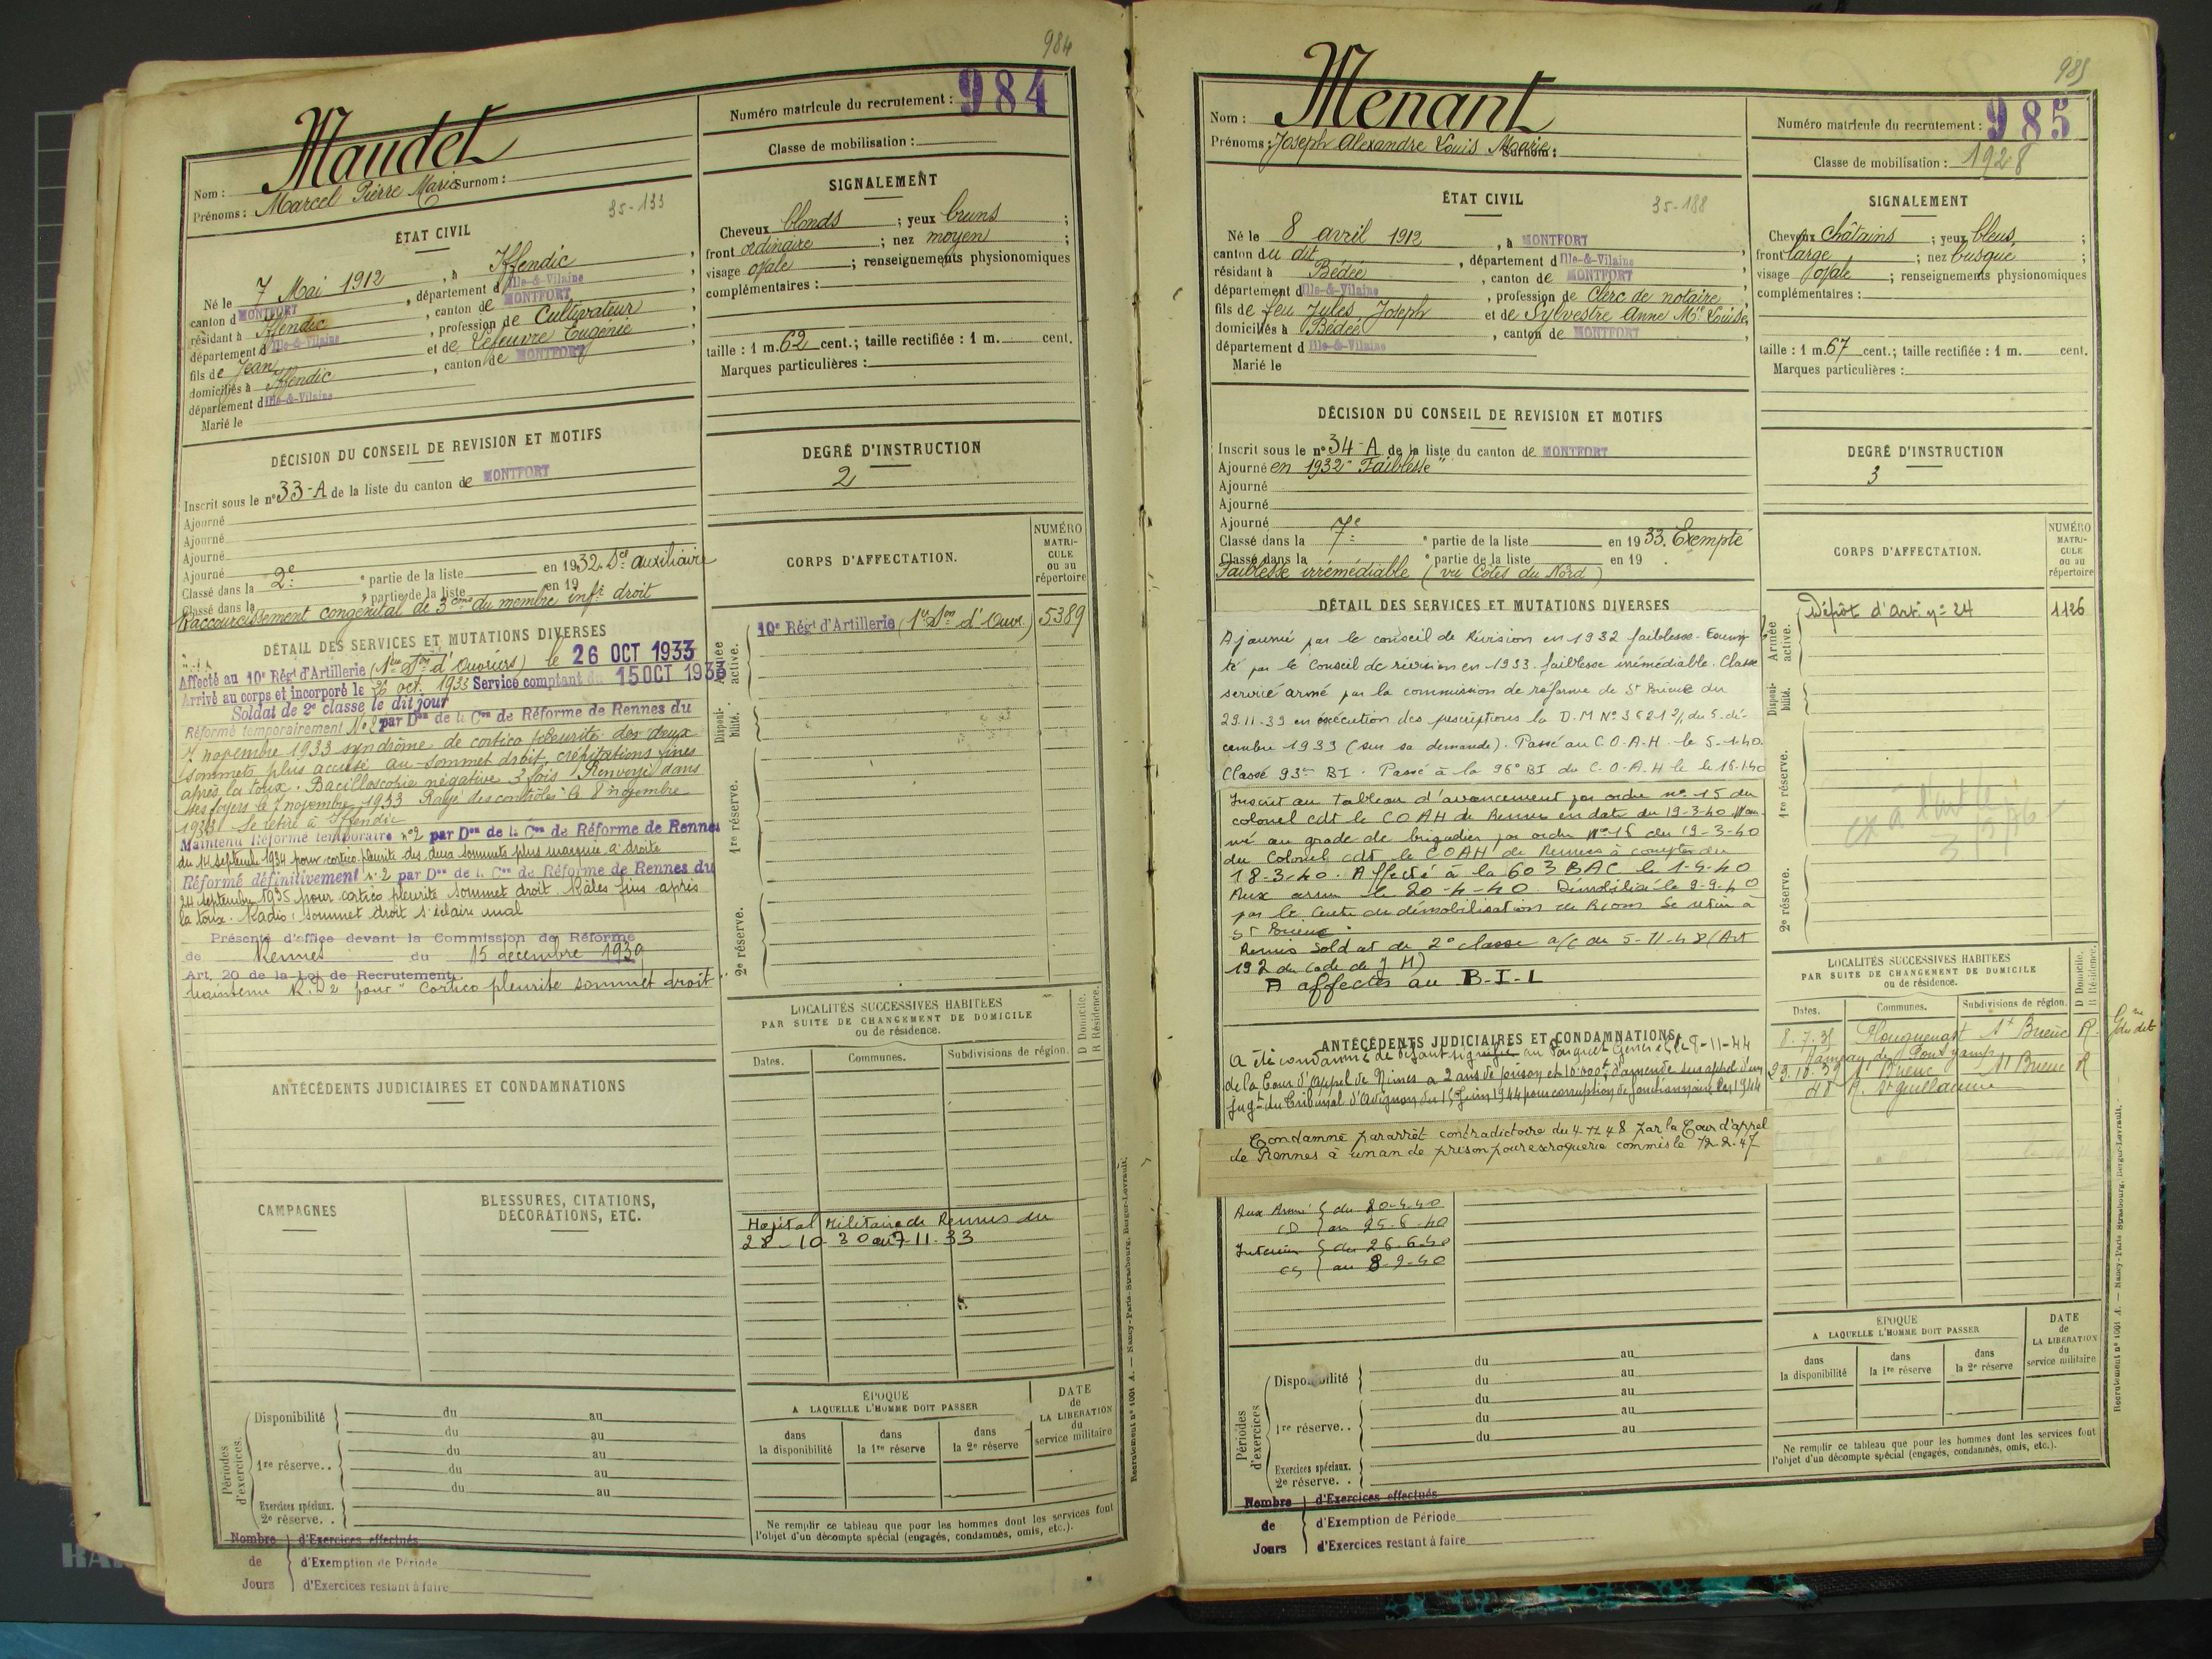 984
Numéro matricule du recrutement : 984
Classe de mobilisation :
Nom : Maudet
Prénoms : Marcel Pierre Marie Surnom :
35-133
ÉTAT CIVIL
Né le 7 Mai 1912, à Iffendic
canton d MONTFORT, département d Ille-&-Vilaine
résidant à Iffendic, canton de MONTFORT
département d Ille-&-Vilaine, profession de Cultivateur
fils de Jean et de Lefeuvre Eugénie
domiciliés à Iffendic, canton de MONTFORT
département d Ille-&-Vilaine
Marié le
SIGNALEMENT
Cheveux blonds ; yeux bruns ;
front ordinaire ; nez moyen ;
visage ovale ; renseignements physionomiques
complémentaires :
taille : 1 m. 62 cent. ; taille rectifiée : 1 m. cent.
Marques particulières :
DÉCISION DU CONSEIL DE REVISION ET MOTIFS
Inscrit sous le n° 33-A de la liste du canton de MONTFORT
Ajourné
Ajourné
Ajourné
Ajourné
Classé dans la 2e ° partie de la liste en 1932. Sce auxiliaire
Classé dans la ° partie de la liste en 19
Raccourcissement congénital de 3 cms du membre infr droit
DEGRÉ D'INSTRUCTION
2
CORPS D'AFFECTATION.
NUMÉRO MATRI-CULE ou au répertoire
Armée active.
10e Régt d'Artillerie (1re Son d'Ouvr.) 5389
Disponi-bilité.
1re réserve.
2e réserve.
DÉTAIL DES SERVICES ET MUTATIONS DIVERSES
Affecté au 10e Régt d'Artillerie (1re Son d'Ouvriers) le 26 OCT 1933
Arrivé au corps et incorporé le 26 oct. 1933 Service comptant du 15 OCT 1933
Soldat de 2e classe le dit jour
Réformé temporairement No 2 par Don de la Con de Réforme de Rennes du
7 novembre 1933 syndrome de cortico pleurite des deux
sommets plus accusé au sommet droit, crépitations fines
après la toux. Bacilloscopie négative 3 fois Renvoyé dans
ses foyers le 7 novembre 1933 Rayé des contrôles le 8 novembre
1933 Se retire à Iffendic
Maintenu Réformé temporaire n°2 par Don de la Con de Réforme de Rennes
du 14 septembre 1934 pour cortico pleurite des deux sommets plus marquée à droite
Réformé définitivement n°2 par Don de la Con de Réforme de Rennes du
24 septembre 1935 pour cortico pleurite sommet droit. Râles fins après
la toux. Radio : sommet droit s'éclaire mal
Présenté d'office devant la Commission de Réforme
de Rennes du 15 décembre 1939
Art. 20 de la Loi de Recrutement
Maintenu R.D 2 pour "Cortico pleurite sommet droit"
ANTÉCÉDENTS JUDICIAIRES ET CONDAMNATIONS
LOCALITÉS SUCCESSIVES HABITÉES
PAR SUITE DE CHANGEMENT DE DOMICILE
ou de résidence.
Dates. Communes. Subdivisions de région. D Domicile. R Résidence.
Hopital Militaire de Rennes du
28-10-30 au 7-11-33
CAMPAGNES
BLESSURES, CITATIONS,
DÉCORATIONS, ETC.
Périodes d'exercices.
Disponibilité du au
du au
1re réserve.. du au
du au
du au
Exercices spéciaux.
2e réserve. .
ÉPOQUE
A LAQUELLE L'HOMME DOIT PASSER
dans la disponibilité
dans la 1re réserve
dans la 2e réserve
DATE de LA LIBÉRATION du service militaire
Ne remplir ce tableau que pour les hommes dont les services font
l'objet d'un décompte spécial (engagés, condamnés, omis, etc.).
Nombre de Jours
d'Exercices effectués
d'Exemption de Période
d'Exercices restant à faire
Recrutement n° 1001 A. — Nancy-Paris-Strasbourg, Berger-Levrault.
985
Numéro matricule du recrutement : 985
Classe de mobilisation : 1928
Nom : Menant
Prénoms : Joseph Alexandre Louis Marie Surnom :
35-188
ÉTAT CIVIL
Né le 8 avril 1912, à MONTFORT
canton du dit, département d Ille-&-Vilaine
résidant à Bédée, canton de MONTFORT
département d Ille-&-Vilaine, profession de Clerc de notaire
fils de feu Jules Joseph et de Sylvestre Anne Mie Louise
domiciliés à Bédée, canton de MONTFORT
département d Ille-&-Vilaine
Marié le
SIGNALEMENT
Cheveux châtains ; yeux bleus ;
front large ; nez busqué ;
visage ovale ; renseignements physionomiques
complémentaires :
taille : 1 m. 67 cent. ; taille rectifiée : 1 m. cent.
Marques particulières :
DÉCISION DU CONSEIL DE REVISION ET MOTIFS
Inscrit sous le n° 34-A de la liste du canton de MONTFORT
Ajourné en 1932 "Faiblesse"
Ajourné
Ajourné
Ajourné
Classé dans la 7e ° partie de la liste en 1933. Exempté
Classé dans la ° partie de la liste en 19
Faiblesse irrémédiable (vu Côtes du Nord)
DEGRÉ D'INSTRUCTION
3
CORPS D'AFFECTATION.
NUMÉRO MATRI-CULE ou au répertoire
Armée active.
Dépôt d'Art. n° 24 1126
Disponi-bilité.
1re réserve.
2e réserve.
DÉTAIL DES SERVICES ET MUTATIONS DIVERSES
Ajourné par le conseil de Révision en 1932 faiblesse. Exemp-
té par le Conseil de révision en 1933. faiblesse irrémédiable. Classé
service armé par la commission de réforme de St Brieuc du
29.11.39 en exécution des prescriptions la D.M No 3621 du 5. dé-
cembre 1933 (sur sa demande). Passé au C.O.A.H. le 5-1-40.
Classé 93e BI. Passé à la 96e BI du C.O.A.H le le 16.1.40
Inscrit au tableau d'avancement par ordre n° 15 du
colonel cdt le COAH de Rennes en date du 19-3-40 Nom-
mé au grade de brigadier par ordre N°15 du 19-3-40
du Colonel cdt le COAH de Rennes à compter du
18-3-40. Affecté à la 603 BAC le 1-4-40
Aux armées le 20-4-40. Démobilisé le 9-9-40
par le Centre de démobilisation de Riom Se retire à
St Brieuc.
Remis Soldat de 2e classe a/c du 5-11-48 (Art
192 du Code de J M)
A affecter au B-I-L
ANTÉCÉDENTS JUDICIAIRES ET CONDAMNATIONS
A été condamné de défaut signifié au Parquet Général le 8-11-44
de la Cour d'Appel de Nimes a 2 ans de prison et 10.000f d'amende sur appel d'un
jugt du Tribunal d'Avignon du 15 Juin 1944 pour corruption de fonctionnaire en 1944
Condamné par arrêt contradictoire du 4-11-48 par la Cour d'appel
de Rennes à un an de prison pour escroquerie commis le 12-2-47
Aux Armées du 20-4-40
CD au 25-6-40
Intérieur du 26-6-40
CS au 8-9-40
LOCALITÉS SUCCESSIVES HABITÉES
PAR SUITE DE CHANGEMENT DE DOMICILE
ou de résidence.
Dates. Communes. Subdivisions de région. D Domicile. R Résidence.
8.7.35 Plouguenast St Brieuc R
23.10.39 St Brieuc St Brieuc R
R. St Guillaume
Périodes d'exercices
Disponibilité du au
du au
du au
1re réserve.. du au
du au
Exercices spéciaux.
2e réserve. .
ÉPOQUE
A LAQUELLE L'HOMME DOIT PASSER
dans la disponibilité
dans la 1re réserve
dans la 2e réserve
DATE de LA LIBÉRATION du service militaire
Ne remplir ce tableau que pour les hommes dont les services font
l'objet d'un décompte spécial (engagés, condamnés, omis, etc.).
Nombre de Jours
d'Exercices effectués
d'Exemption de Période
d'Exercices restant à faire
Recrutement n° 1001 A. — Nancy-Paris-Strasbourg, Berger-Levrault.